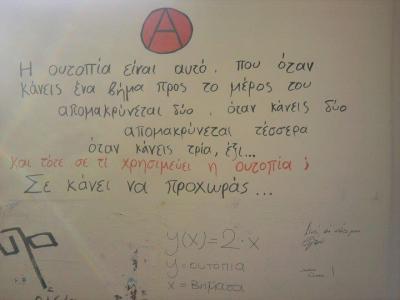 A
Η ουτοπία είναι αυτό, που όταν
κάνεις ένα βήμα προς το μέρος του
απομακρύνεται δύο, όταν κάνεις δύο
απομακρύνεται τέσσερα
όταν κάνεις τρία, έξι...
και τότε σε τί χρησιμεύει η ουτοπία;
Σε κάνει να προχωράς...
y(x)=2·x
y=ουτοπία
x=βήματα